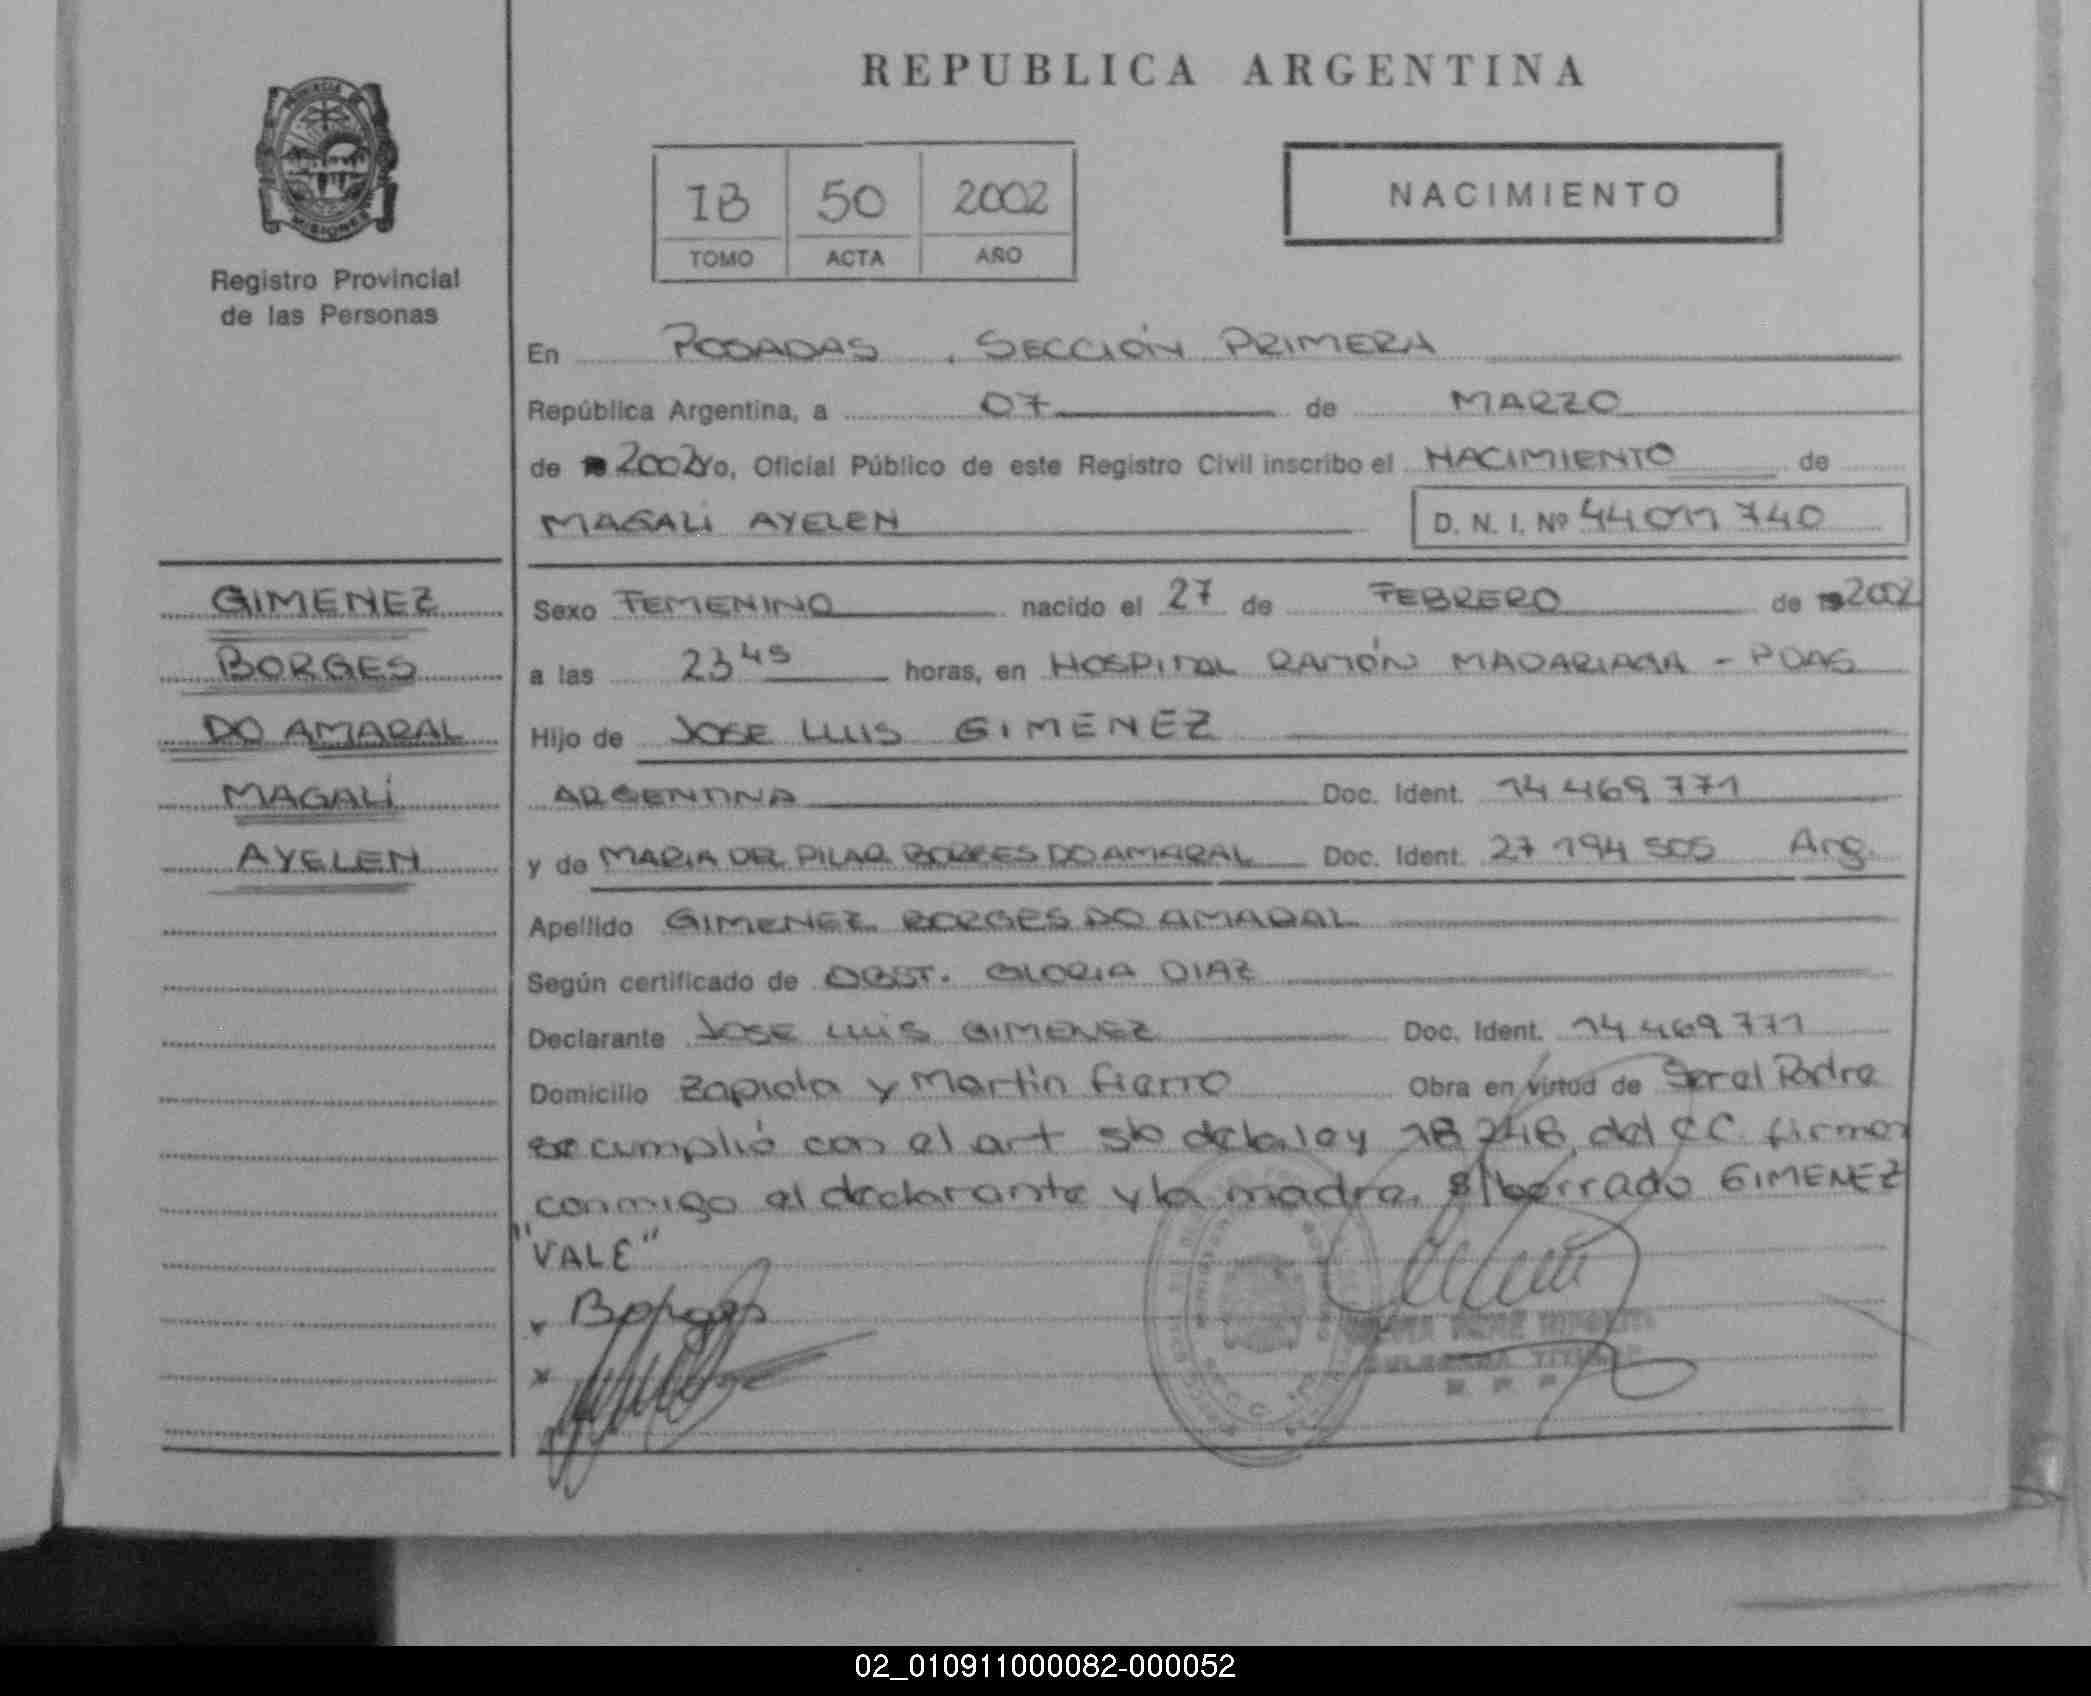 REPUBLICA ARGENTINA
PROVINCIA DE
MISIONES
Registro Provincial
de las Personas
1B 50 2002
TOMO ACTA AÑO
NACIMIENTO
En POSADAS, SECCIÓN PRIMERA
República Argentina, a 07 de MARZO
de 2002 Yo, Oficial Público de este Registro Civil inscribo el NACIMIENTO de
MAGALI AYELEN D. N. I. Nº 44 011 740
GIMENEZ
BORGES
DO AMARAL
MAGALI
AYELEN
Sexo FEMENINO nacido el 27 de FEBRERO de 2002
a las 23 45 horas, en HOSPITAL RAMÓN MADARIAGA - PDAS
Hijo de JOSE LUIS GIMENEZ
ARGENTINA Doc. Ident. 14 469 771
y de MARIA DEL PILAR BORGES DO AMARAL Doc. Ident. 27 194 505 Arg.
Apellido GIMENEZ BORGES DO AMARAL
Según certificado de OBST. GLORIA DIAZ
Declarante JOSE LUIS GIMENEZ Doc. Ident. 14 469 771
Domicilio Zapiola y Martin fierro Obra en virtud de Ser el Padre
se cumplió con el art 5to de la ley 18 248 del CC. firman
conmigo el declarante y la madre. s/borrado GIMENEZ
"VALE"
x Borges
x
02_010911000082-000052